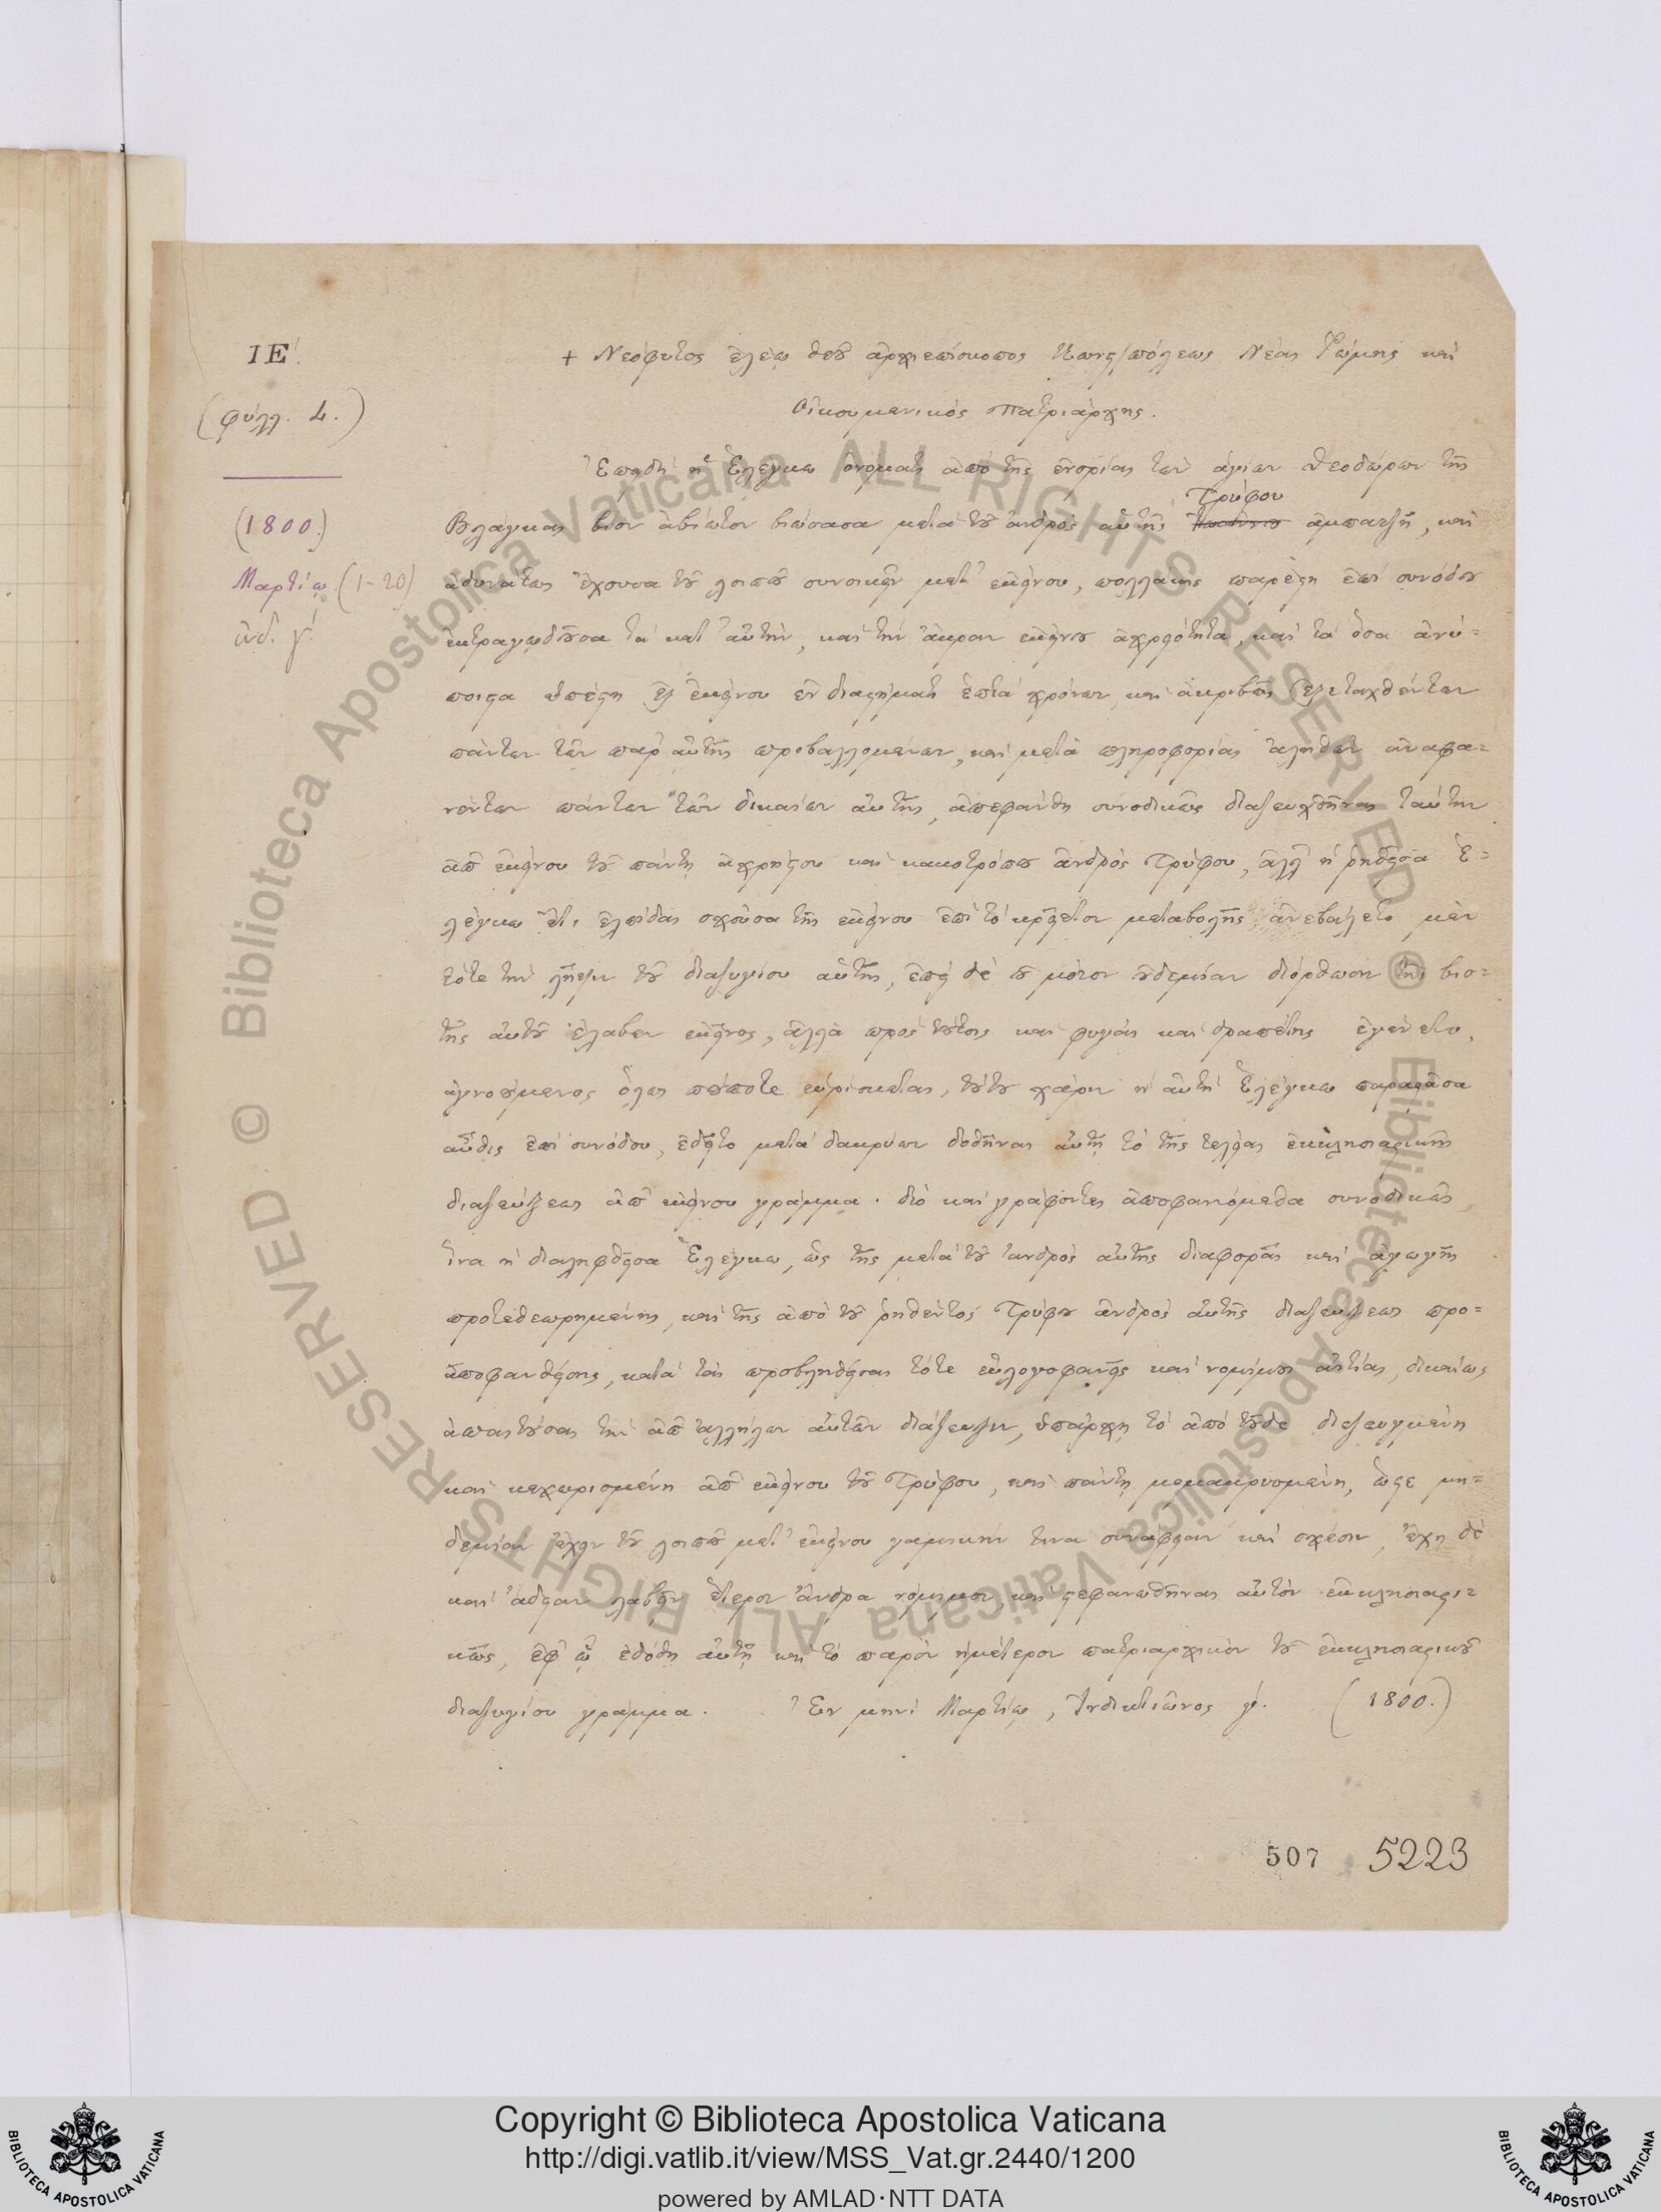 ΙΕ΄.
(φύλλ. 4.)
(1800.)
Μαρτίῳ (1-20)
ἰνδ. γ΄.
+ Νεόφυτος ἐλέῳ θεοῦ ἀρχιεπίσκοπος Κωνς/πόλεως Νέας Ῥώμης καὶ
Οἰκουμενικὸς Πατριάρχης.
Ἐπειδὴ ἡ Ἑλέγκω ὀνόματι ἀπὸ τῆς ἐνορίας τῶν ἁγίων Θεοδώρων τῆς
Τρύφου
Βλάγκας βίον ἀβίωτον βιώσασα μετὰ τοῦ ἀνδρὸς αὐτῆς ἀμπατζῆ, καὶ
ἀδυνάτως ἔχουσα τοῦ λοιποῦ συνοικεῖν μετ' ἐκείνου, πολλάκις παρέστη ἐπὶ συνόδου
ἐκτραγῳδοῦσα τὰ κατ' αὐτήν, καὶ τὴν ἄκραν ἐκείνου ἀχρειότητα, καὶ τὰ ὅσα ἀνύ=
ποιστα ὑπέστη ἐξ ἐκείνου ἐν διαστήματι ἑπτὰ χρόνων, καὶ ἀκριβῶς ἐξετασθέντων
πάντων τῶν παρ' αὐτῆς προβαλλομένων, καὶ μετὰ πληροφορίας ἀληθῶν ἀναφα=
νέντων πάντων τῶν δικαίων αὐτῆς, ἀπεφάνθη συνοδικῶς διαζευχθῆναι ταύτην
ἀπ' ἐκείνου τοῦ πάντη ἀχρήστου καὶ κακοτρόπου ἀνδρὸς Τρύφου, ἀλλ' ἡ ῥηθεῖσα Ἑ=
λέγκω ἔτι ἐλπίδας σχοῦσα τῆς ἐκείνου ἐπὶ τὸ κρεῖττον μεταβολῆς ἀνεβάλετο μὲν
τότε τὴν λῆψιν τοῦ διαζυγίου αὐτῆς, ἐπεὶ δὲ οὐ μόνον οὐδεμίαν διόρθωσιν τῆς βιο=
τῆς αὐτοῦ ἔλαβεν ἐκεῖνος, ἀλλὰ πρὸς τούτοις καὶ φυγὰς καὶ δραπέτης ἐγένετο,
ἀγνοούμενος ὅλως ποῦποτε εὑρίσκεται, τούτου χάριν ἡ αὐτὴ Ἑλέγκω παραστᾶσα
αὖθις ἐπὶ συνόδου, ἐδεῖτο μετὰ δακρύων δοθῆναι αὐτῇ τὸ τῆς τελείας ἐκκλησιαστικῆς
διαζεύξεως ἀπ' ἐκείνου γράμμα. διὸ καὶ γράφοντες ἀποφαινόμεθα συνοδικῶς
ἵνα ἡ διαληφθεῖσα Ἑλέγκω, ὡς τῆς μετὰ τοῦ ἀνδρὸς αὐτῆς διαφορᾶς καὶ ἀγωγῆς
προτεθεωρημένης, καὶ τῆς ἀπὸ τοῦ ῥηθέντος Τρύφου ἀνδρὸς αὐτῆς διαζεύξεως προ=
αποφανθείσης, κατὰ τὰς προβληθείσας τότε εὐλογοφανεῖς καὶ νομίμους αἰτίας, δικαίως
ἀπαιτούσας τὴν ἀπ' ἀλλήλων αὐτῶν διάζευξιν, ὑπάρχῃ τὸ ἀπὸ τοῦδε διεζευγμένη
καὶ κεχωρισμένη ἀπ' ἐκείνου τοῦ Τρύφου, καὶ πάντῃ μεμακρυσμένη, ὥστε μη=
δεμίαν ἔχειν τοῦ λοιποῦ μετ' ἐκείνου γαμικήν τινα συνάφειαν καὶ σχέσιν, ἔχῃ δὲ
καὶ ἄδειαν λαβεῖν ἕτερον ἄνδρα νόμιμον καὶ στεφανωθῆναι αὐτὸν ἐκκλησιαστι=
κῶς, ἐφ' ᾧ ἐδόθη αὐτῇ καὶ τὸ παρὸν ἡμέτερον πατριαρχικὸν τοῦ ἐκκλησιαστικοῦ
διαζυγίου γράμμα. Ἐν μηνὶ Μαρτίῳ, Ἰνδικτιῶνος γ΄. (1800.)
507 5223
© Biblioteca Apostolica Vaticana ALL RIGHTS RESERVED © Biblioteca Apostolica Vaticana ALL RIGHTS RESERVED
Copyright © Biblioteca Apostolica Vaticana
http://digi.vatlib.it/view/MSS_Vat.gr.2440/1200
powered by AMLAD·NTT DATA
BIBLIOTECA APOSTOLICA VATICANA
BIBLIOTECA APOSTOLICA VATICANA